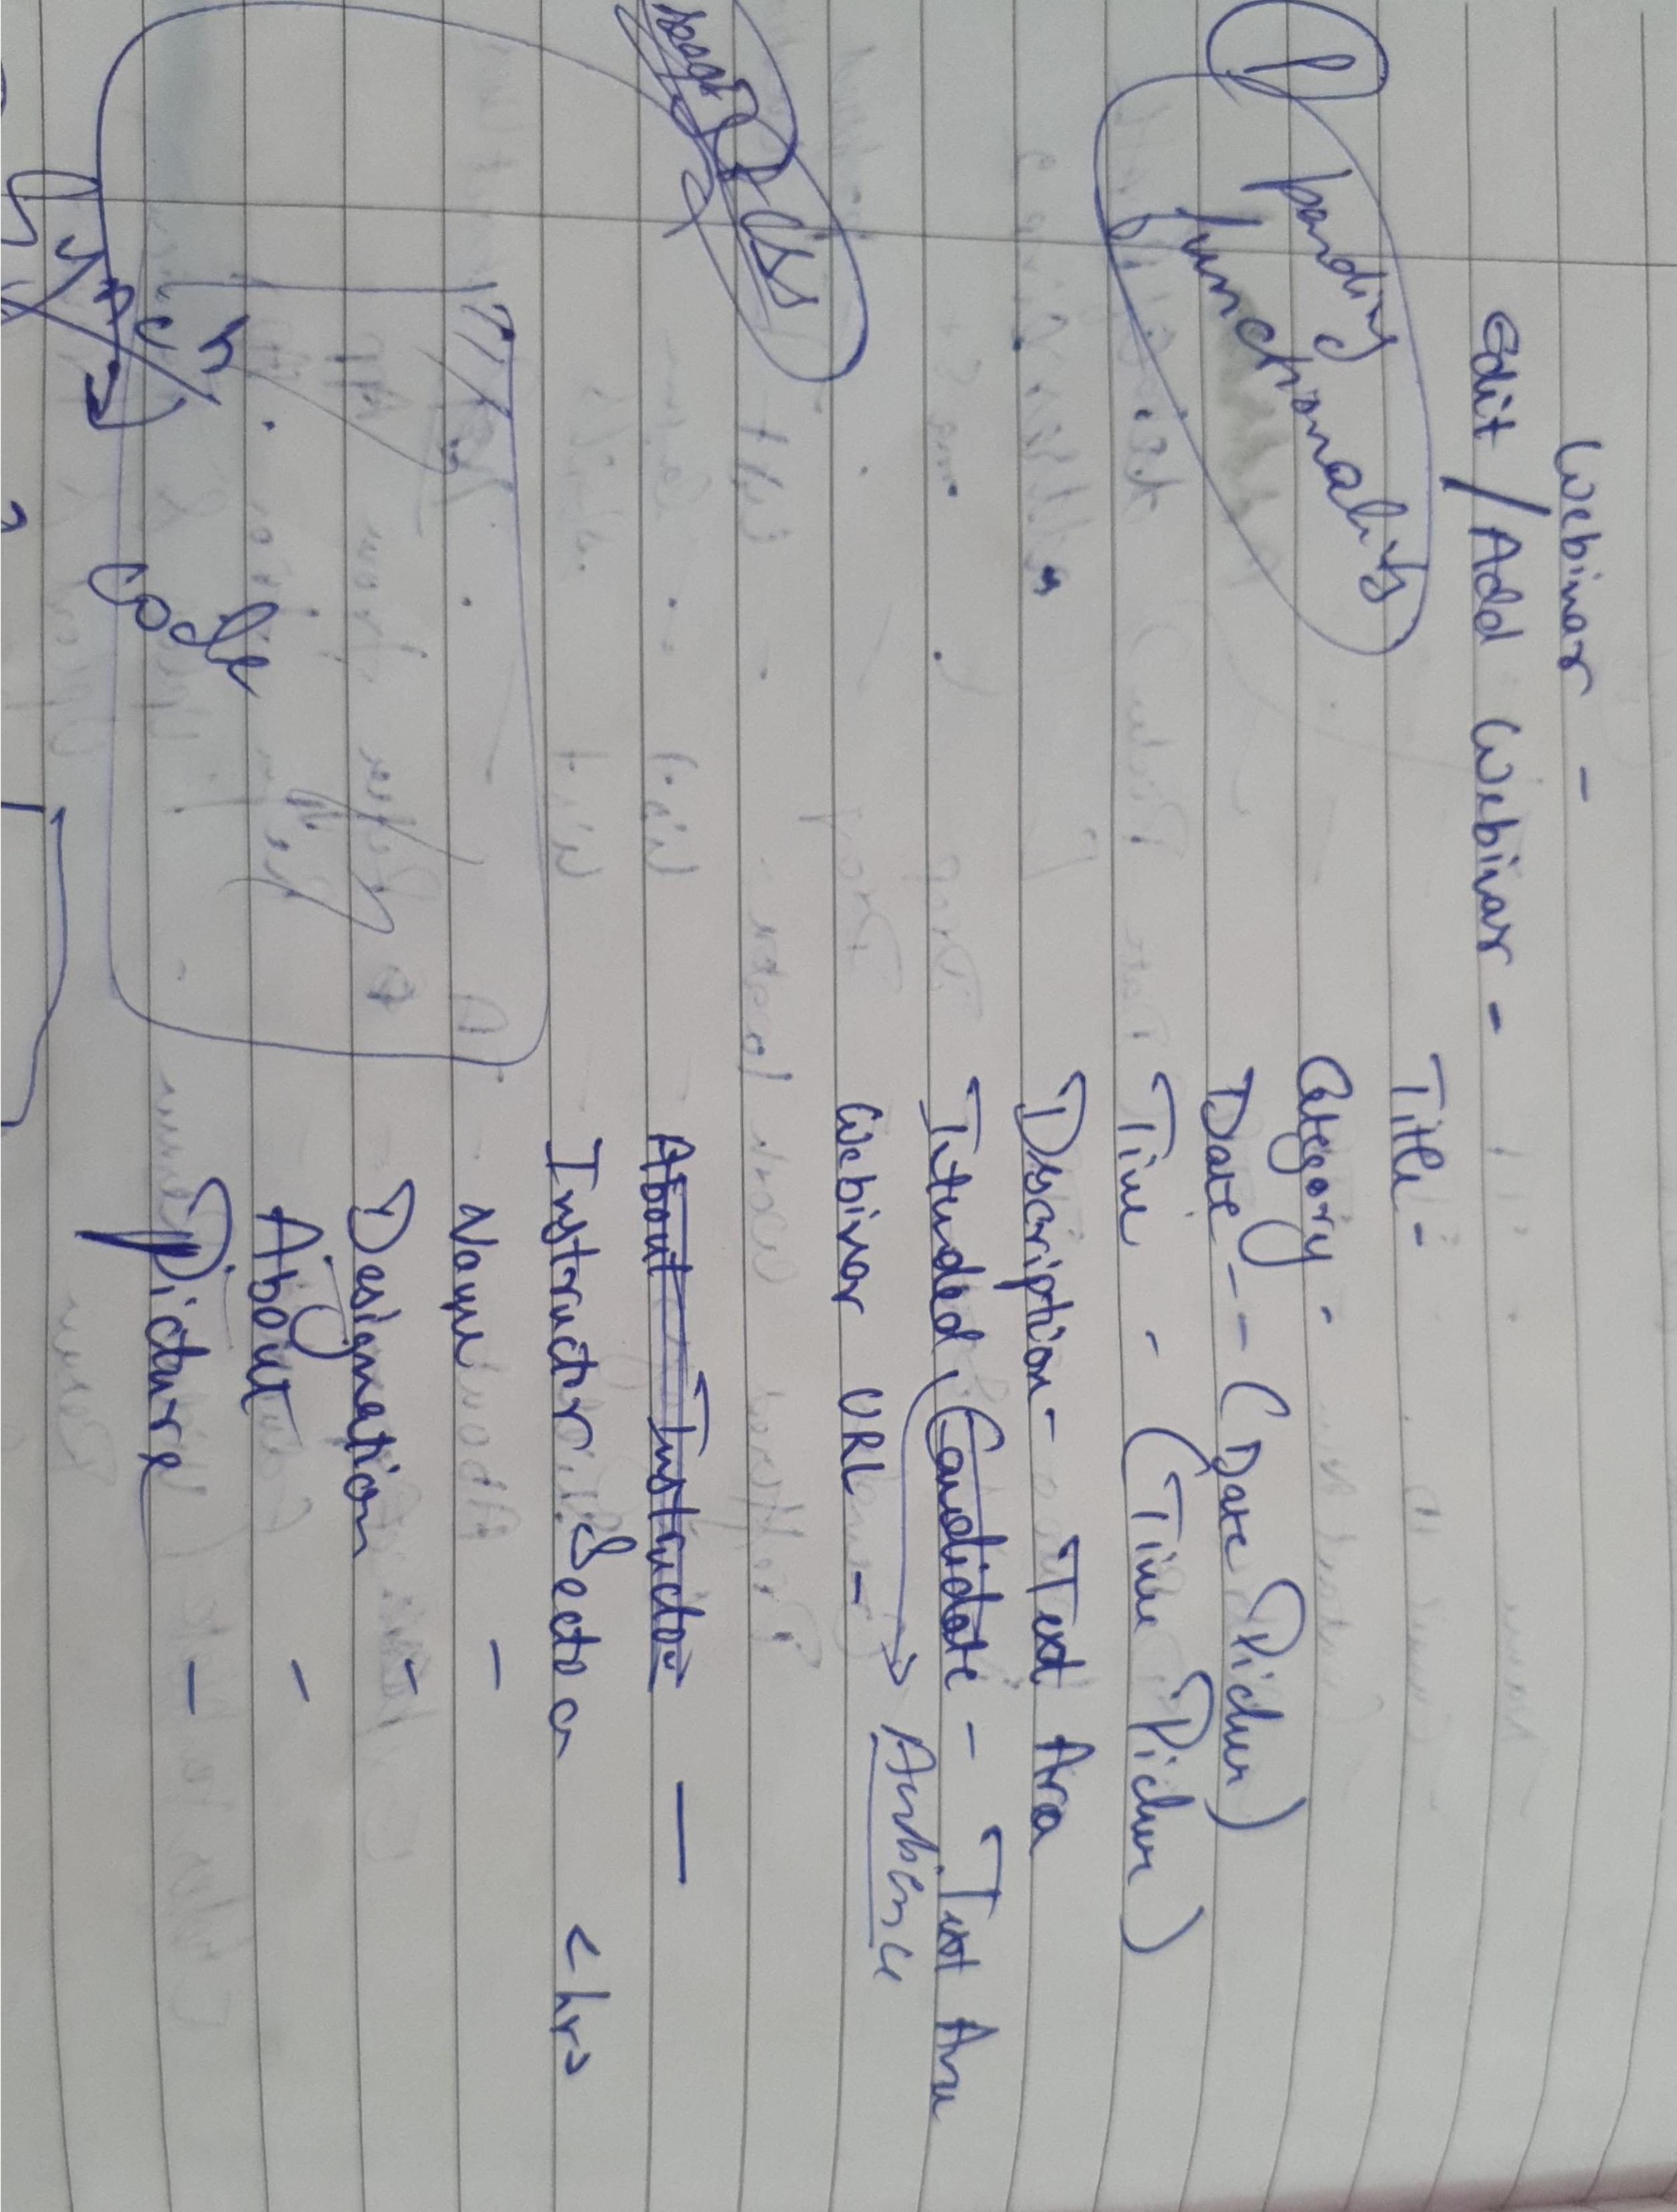 Webinar -
Edit / Add Webinar -
Title -
P
pending
functionality
Category -
Date -- (Date Picker)
Time - (Time Picker)
Description - Text Area
Intended Candidate - Text Area
Audience
Webinar URL -
CSS
About Instructor —
Instructor Section <hr>
Name -
Designation -
About -
Picture -
Synch
code